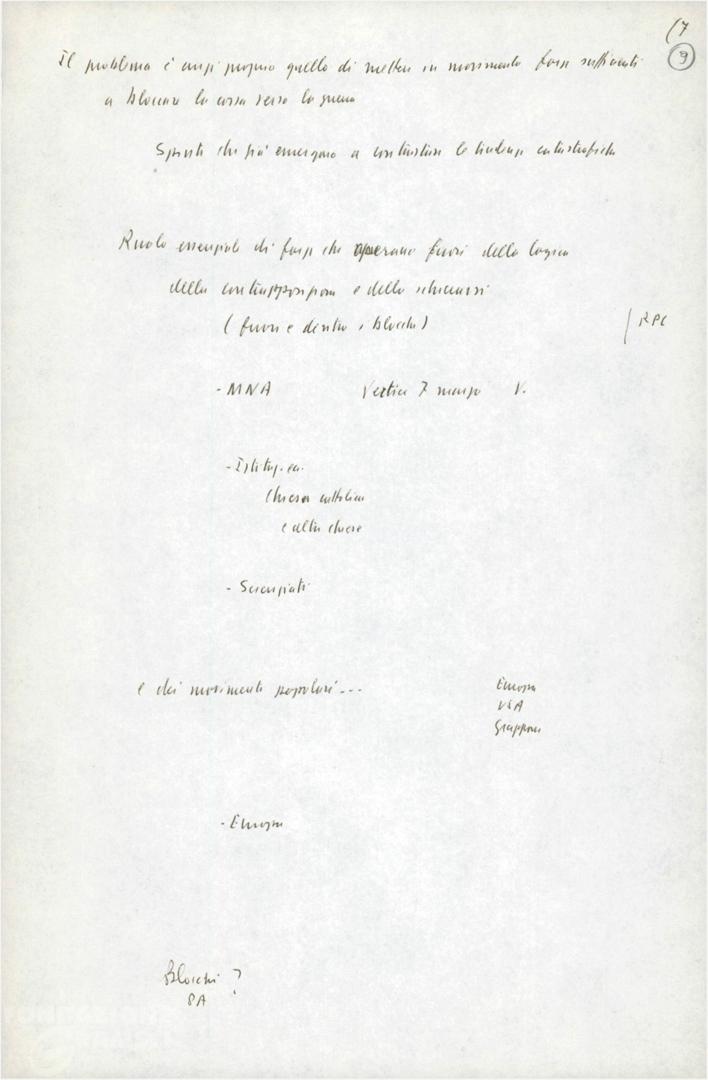 (7
9
Il problema è anzi proprio quello di mettere in movimento forze sufficienti
a bloccare la corsa verso la guerra
Spinte che più emergono a contrastare le tendenze catastrofiche
Ruolo essenziale di forze che operano fuori della logica
della contrapposizione e dello
(fuori e dentro i blocchi)
RPC
- MNA Vertice 7 marzo V.
- Istituz.
Chiesa cattolica
e altre chiese
- Scienziati
e dei movimenti popolari...
Europa
USA
Giappone
- Europa
Blocchi ?
PA